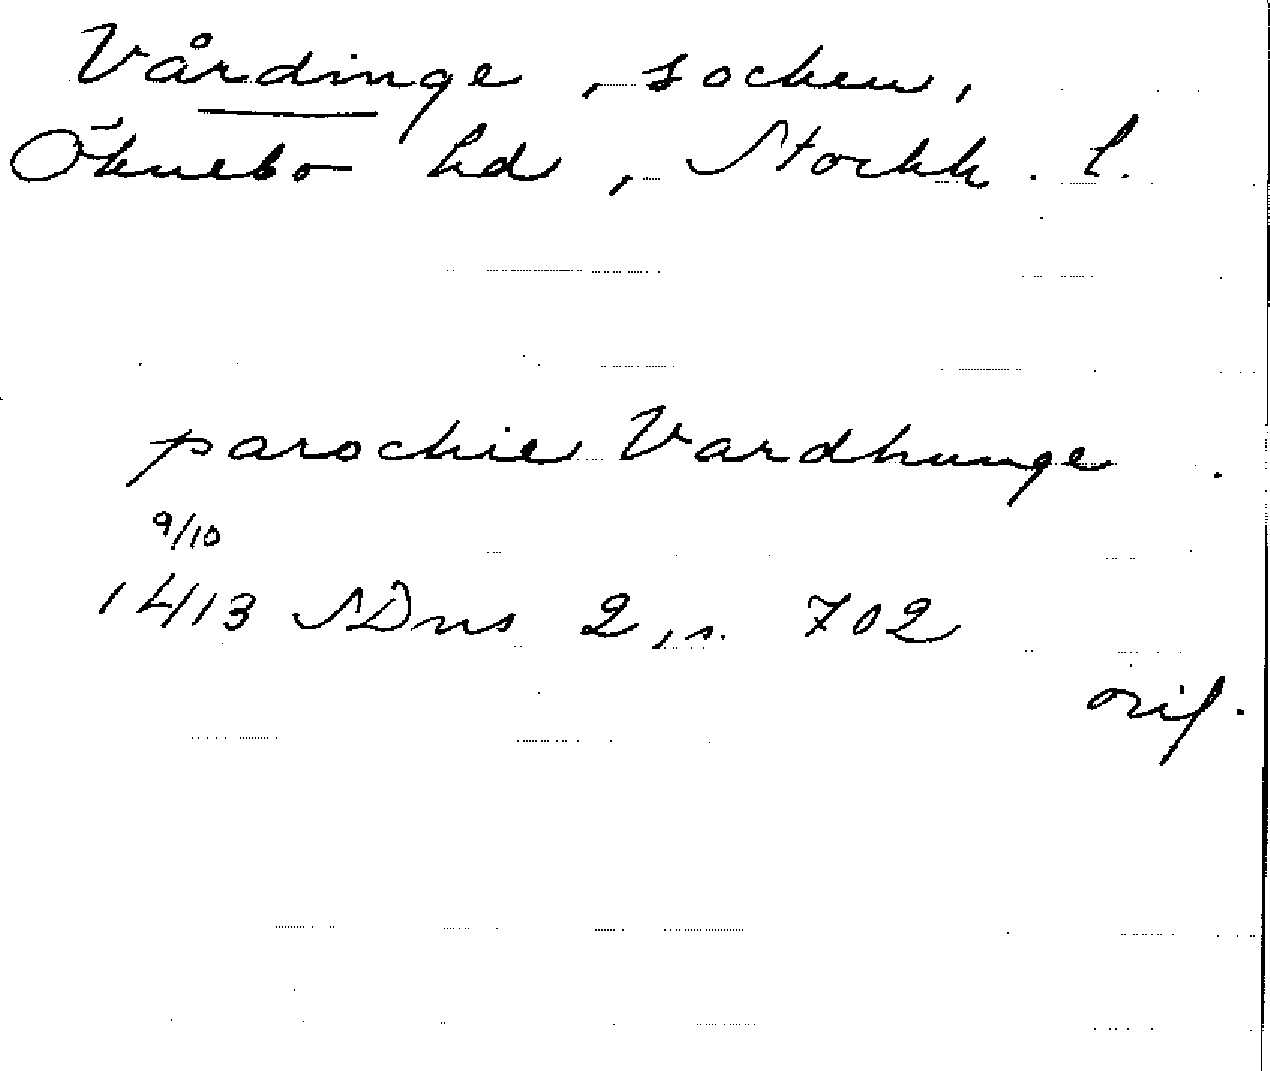 Vårdinge, socken,
Öknebo hd, Stockh. l.
parochie Vardhunge
9/10
1413 SDns 2, s. 702
orig.